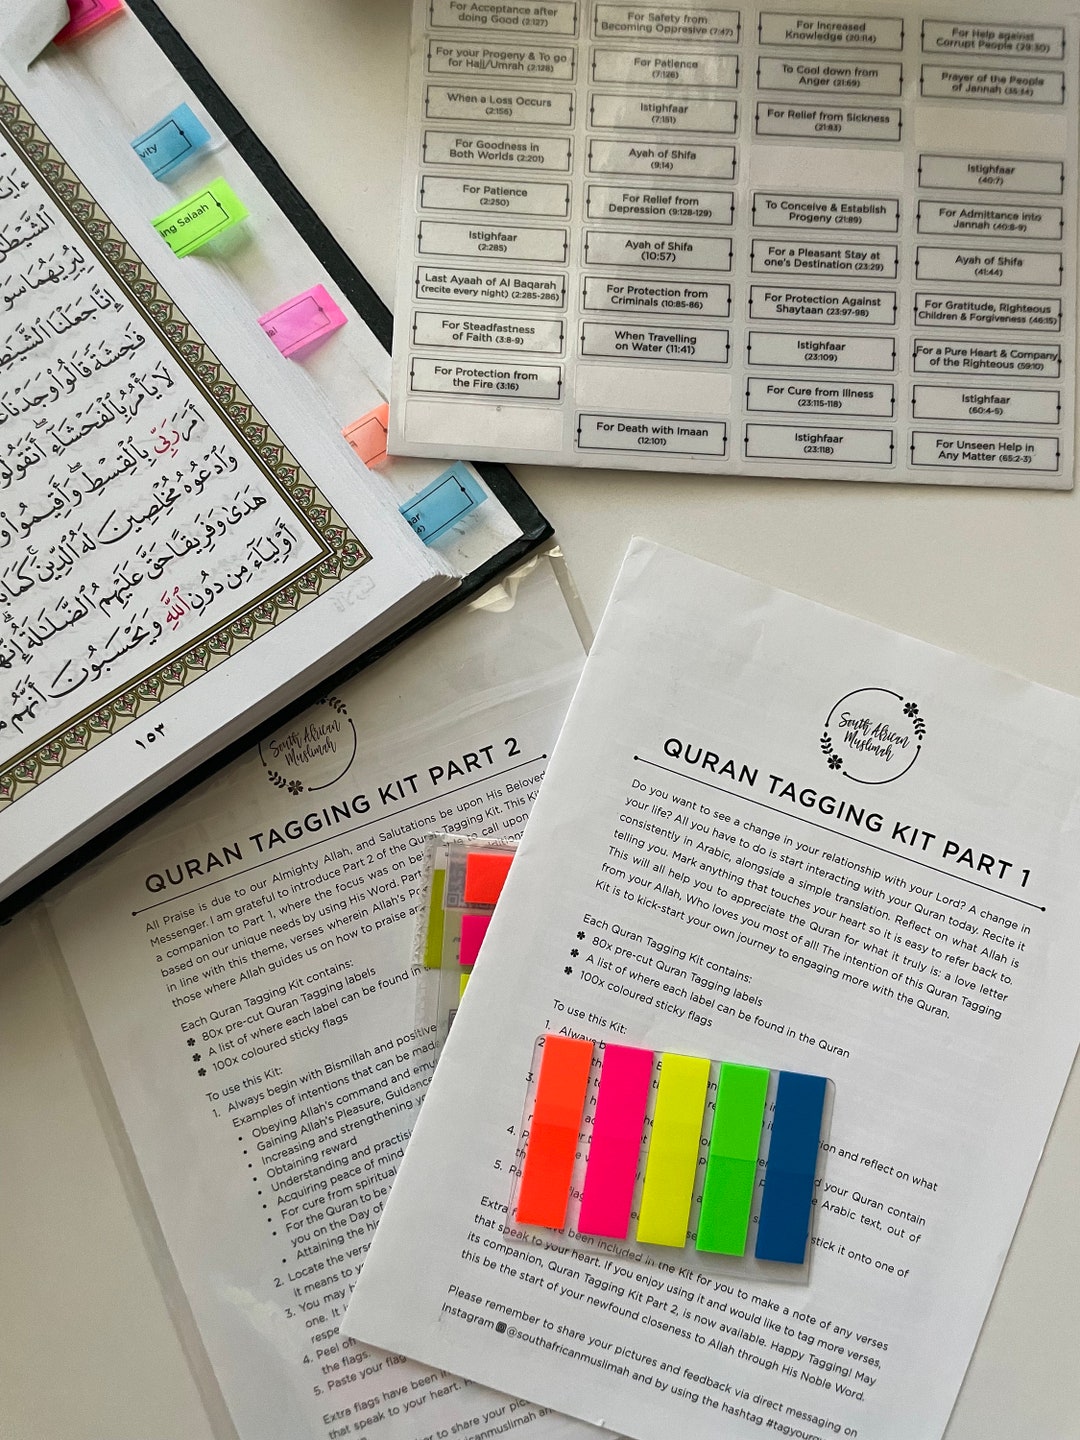 For Acceptance after
doing Good (2:127)
For your Progeny & To go
for Hajj/Umrah (2:128)
When a Loss Occurs
(2:156)
For Goodness in
Both Worlds (2:201)
For Patience
(2:250)
Istighfaar
(2:285)
Last Ayaah of Al Baqarah
(recite every night) (2:285-286)
For Steadfastness
of Faith (3:8-9)
For Protection from
the Fire (3:16)
For Safety from
Becoming Oppresive (7:47)
For Patience
(7:126)
Istighfaar
(7:151)
Ayah of Shifa
(9:14)
For Relief from
Depression (9:128-129)
Ayah of Shifa
(10:57)
For Protection from
Criminals (10:85-86)
When Travelling
on Water (11:41)
For Death with Imaan
(12:101)
For Increased
Knowledge (20:114)
To Cool down from
Anger (21:69)
For Relief from Sickness
(21:83)
To Conceive & Establish
Progeny (21:89)
For a Pleasant Stay at
one's Destination (23:29)
For Protection Against
Shaytaan (23:97-98)
Istighfaar
(23:109)
For Cure from Illness
(23:115-118)
Istighfaar
(23:118)
For Help against
Corrupt People (29:30)
Prayer of the People
of Jannah (35:34)
Istighfaar
(40:7)
For Admittance into
Jannah (40:8-9)
Ayah of Shifa
(41:44)
For Gratitude, Righteous
Children & Forgiveness (46:15)
For a Pure Heart & Company
of the Righteous (59:10)
Istighfaar
(60:4-5)
For Unseen Help in
Any Matter (65:2-3)
vity
ing Salaah
الشَّيْطَٰنُ
لِيُرِيَهُمَا سَوْ
إِنَّا جَعَلْنَا الشَّيَٰطِ
فَٰحِشَةً قَالُوا۟ وَجَدْنَا عَ
لَا يَأْمُرُ بِالْفَحْشَآءِ ۖ أَتَقُولُو
أَمَرَ رَبِّى بِالْقِسْطِ ۖ وَأَقِيمُوا۟ وُ
وَادْعُوهُ مُخْلِصِينَ لَهُ الدِّينَ ۚ كَمَا بَ
هَدَىٰ وَفَرِيقًا حَقَّ عَلَيْهِمُ الضَّلَٰلَةُ ۗ إِنَّهُ
أَوْلِيَآءَ مِن دُونِ اللَّهِ وَيَحْسَبُونَ أَنَّهُم
١٥٣
South African
Muslimah
QURAN TAGGING KIT PART 2
All Praise is due to our Almighty Allah, and Salutations be upon His Beloved
Messenger. I am grateful to introduce Part 2 of the Quran Tagging Kit. This Kit
a companion to Part 1, where the focus was on being to call upon
based on our unique needs by using His Word. Part
in line with this theme, verses wherein Allah's Po
those where Allah guides us on how to praise an
Each Quran Tagging Kit contains:
80x pre-cut Quran Tagging labels
A list of where each label can be found in t
100x coloured sticky flags
To use this Kit:
1. Always begin with Bismillah and positive
Examples of intentions that can be made
• Obeying Allah's command and emu
• Gaining Allah's Pleasure, Guidance
• Increasing and strengthening yo
• Obtaining reward
• Understanding and practisi
• Acquiring peace of mind
• For cure from spiritual
• For the Quran to be y
you on the Day of
• Attaining the hig
2. Locate the verse
it means to y
3. You may h
one. It i
respe
4. Peel off
the flags.
5. Paste your flag
Extra flags have been i
that speak to your heart. H
er to share your pic
icanmuslimah an
South African
Muslimah
QURAN TAGGING KIT PART 1
Do you want to see a change in your relationship with your Lord? A change in
your life? All you have to do is start interacting with your Quran today. Recite it
consistently in Arabic, alongside a simple translation. Reflect on what Allah is
telling you. Mark anything that touches your heart so it is easy to refer back to.
This will all help you to appreciate the Quran for what it truly is: a love letter
from your Allah, Who loves you most of all! The intention of this Quran Tagging
Kit is to kick-start your own journey to engaging more with the Quran.
Each Quran Tagging Kit contains:
80x pre-cut Quran Tagging labels
A list of where each label can be found in the Quran
100x coloured sticky flags
To use this Kit:
1. Always b
2.
3.
ion and reflect on what
4.
your Quran contain
Arabic text, out of
5. Pa
stick it onto one of
Extra f have been included in the Kit for you to make a note of any verses
that speak to your heart. If you enjoy using it and would like to tag more verses,
its companion, Quran Tagging Kit Part 2, is now available. Happy Tagging! May
this be the start of your newfound closeness to Allah through His Noble Word.
Please remember to share your pictures and feedback via direct messaging on
Instagram @southafricanmuslimah and by using the hashtag #tagyourq